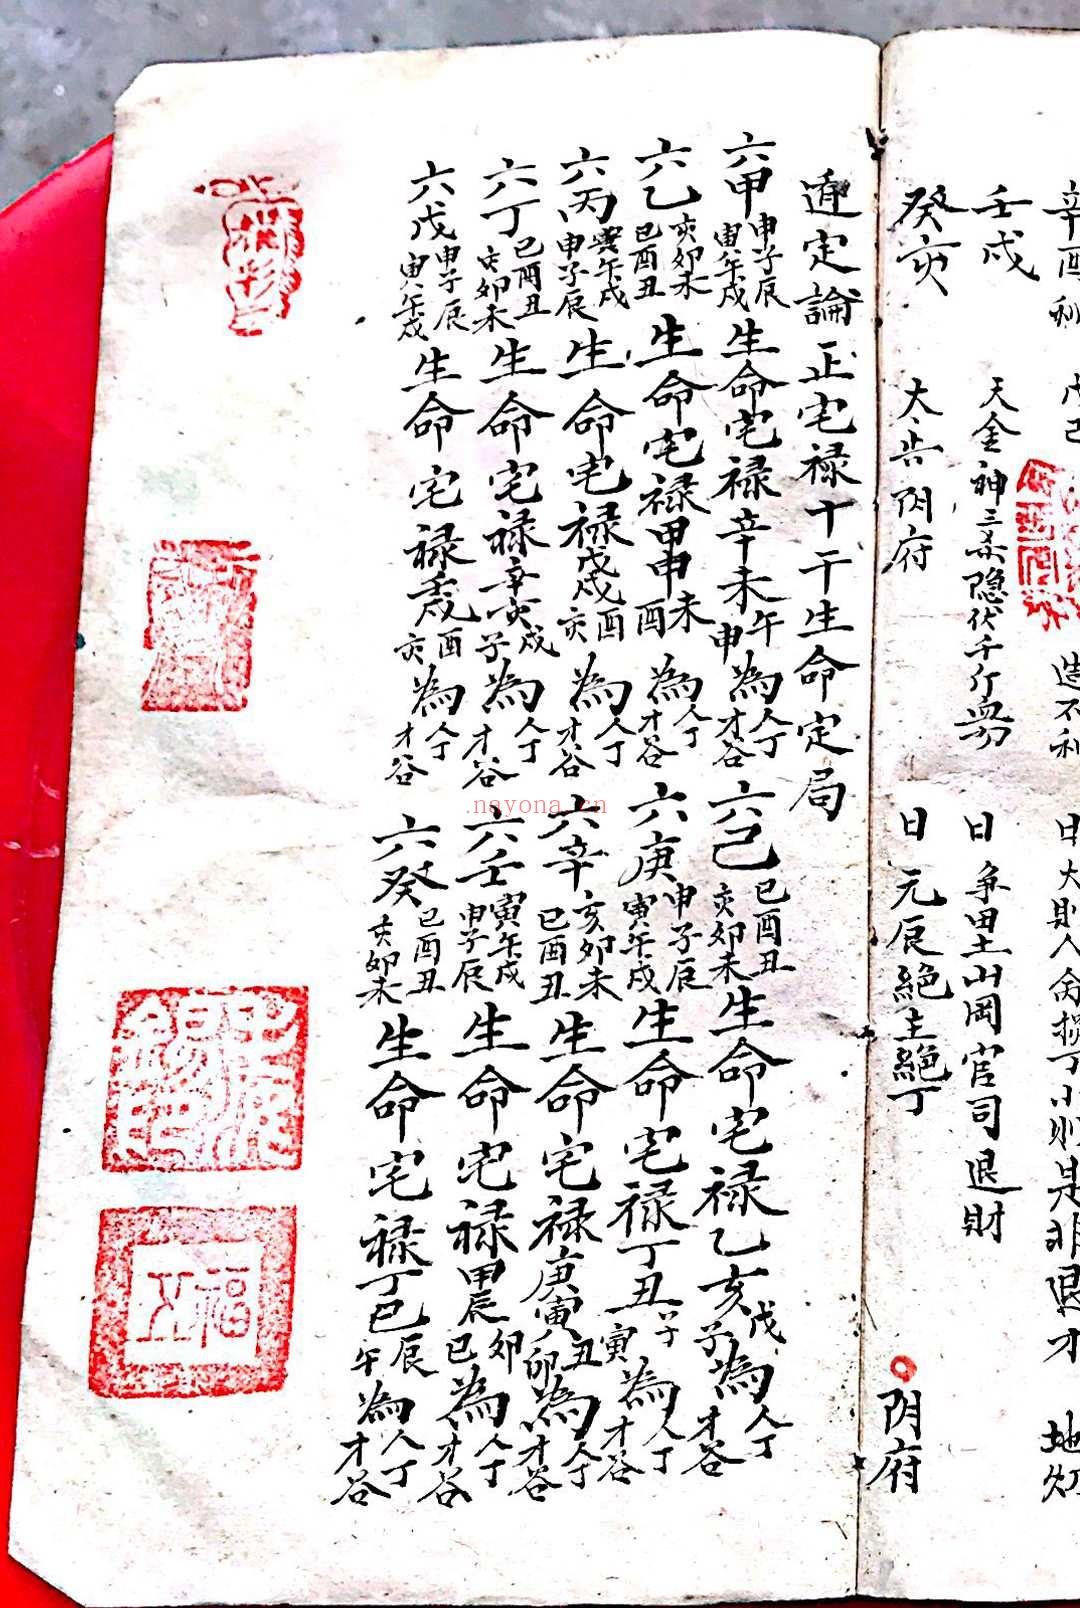 辛酉利 戊己 造不利 日大則人命損丁小則是非退才 地
壬戌 天金神三杀隐伏千斤 日争田土山岡官司退財
癸亥 大吉 阴府 日元辰絕主絕丁 阴府
定論正宅禄十干生命定局
六甲 申子辰 寅午戌 生命宅禄辛未 午 申 為 人丁 才谷
六己 巳酉丑 亥卯未 生命宅禄乙亥 戌 子 為 人丁 才谷
六乙 亥卯未 巳酉丑 生命宅禄甲申 未 酉 為 人丁 才谷
六庚 申子辰 寅午戌 生命宅禄丁丑 子 寅 為 人丁 才谷
六丙 寅午戌 申子辰 生命宅禄戊戌 酉 亥 為 人丁 才谷
六辛 亥卯未 巳酉丑 生命宅禄庚寅 丑 卯 為 人丁 才谷
六丁 巳酉丑 亥卯未 生命宅禄辛亥 戌 子 為 人丁 才谷
六壬 寅午戌 申子辰 生命宅禄甲辰 卯 巳 為 人丁 才谷
六戊 申子辰 寅午戌 生命宅禄 酉 亥 為 人丁 才谷
六癸 巳酉丑 亥卯未 生命宅禄丁巳 辰 午 為 人丁 才谷
福
nayona.cn